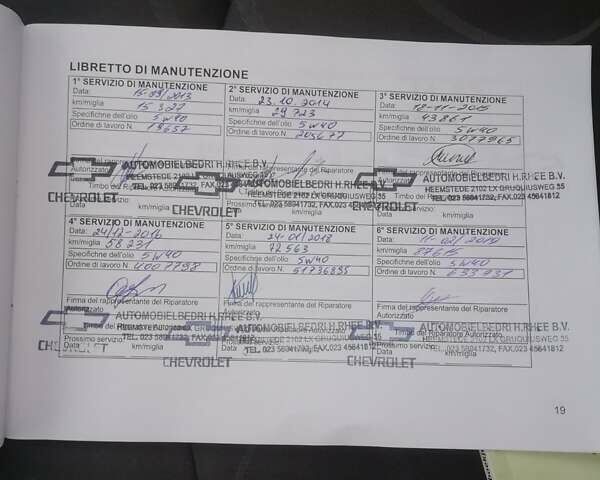 LIBRETTO DI MANUTENZIONE
1° SERVIZIO DI MANUTENZIONE
Data:
km/miglia 15 322
Specifichne dell'olio 5w40
Ordine di lavoro N. 19657
Autorizzato
AUTOMOBIELBEDRIJ H.RHEE B.V.
HEEMSTEDE 2102
TEL. 023 58041732, FAX.023
Data km/miglia
CHEVROLET
2° SERVIZIO DI MANUTENZIONE
Data: 23.10.2014
km/miglia 29 723
Specifichne dell'olio 5w40
Ordine di lavoro N. 203677
Firma del rappresentante del Riparatore
AUTOMOBIELBEDRIJ H.RHEE B.V.
HEEMSTEDE 2102 LX GRUQUIUSWEG 35
TEL. 023 58041732, FAX.023 45641812
CHEVROLET
3° SERVIZIO DI MANUTENZIONE
Data: 12-11-2015
km/miglia 43861
Specifichne dell'olio 5w40
Ordine di lavoro N. 3077965
AUTOMOBIELBEDRIJ H.RHEE B.V.
HEEMSTEDE 2102 LX GRUQUIUSWEG 35
TEL. 023 58041732, FAX.023 45641812
CHEVROLET
4° SERVIZIO DI MANUTENZIONE
Data: 24/12-2016
km/miglia 58 231
Specifichne dell'olio 5w40
Ordine di lavoro N. 4007798
Firma del rappresentante del Riparatore
Autorizzato
Prossimo servizio:
Data km/miglia
CHEVROLET
5° SERVIZIO DI MANUTENZIONE
Data: 24-01/2018
km/miglia 72 563
Specifichne dell'olio 5w40
Ordine di lavoro N. 51736835
Firma del rappresentante del Riparatore
AUTOMOBIELBEDRIJ H.RHEE B.V.
HEEMSTEDE 2102 LX GRUQUIUSWEG 35
TEL. 023 58041732, FAX.023 45641812
CHEVROLET
6° SERVIZIO DI MANUTENZIONE
Data: 11-02/2019
km/miglia 87615
Specifichne dell'olio 5w40
Ordine di lavoro N.
Firma del rappresentante del Riparatore
Autorizzato
AUTOMOBIELBEDRIJ H.RHEE B.V.
HEEMSTEDE 2102 LX GRUQUIUSWEG 35
Prossimo servizio:
TEL. 023 58041732, FAX.023 45641812
Data km/miglia
CHEVROLET
19